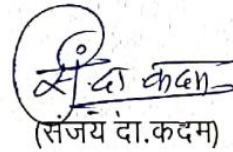 सं. दा. कदम
(संजय दा.कदम)